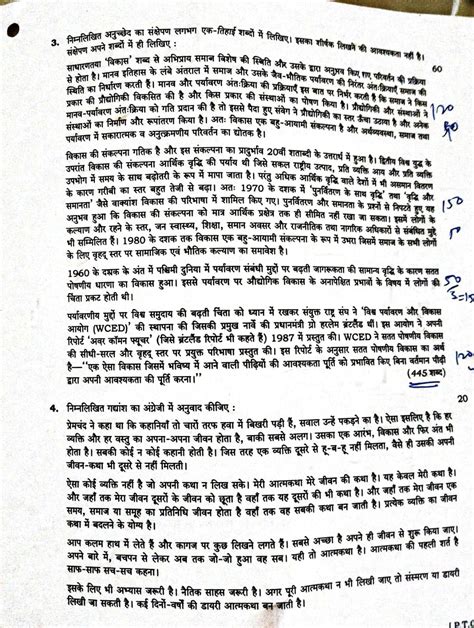 3. निम्नलिखित अनुच्छेद का संक्षेपण लगभग एक-तिहाई शब्दों में लिखिए। इसका शीर्षक लिखने की आवश्यकता नहीं है।
संक्षेपण अपने शब्दों में ही लिखिए :
60
साधारणतया 'विकास' शब्द से अभिप्राय समाज विशेष की स्थिति और उसके द्वारा अनुभव किए गए परिवर्तन की प्रक्रिया
से होता है। मानव इतिहास के लंबे अंतराल में समाज और उसके जैव-भौतिक पर्यावरण की निरंतर अंतःक्रियाएँ समाज की
स्थिति का निर्धारण करती हैं। मानव और पर्यावरण अंतःक्रिया की प्रक्रियाएँ इस बात पर निर्भर करती हैं कि समाज ने किस
प्रकार की प्रौद्योगिकी विकसित की है और किस प्रकार की संस्थाओं का पोषण किया है। प्रौद्योगिकी और संस्थाओं ने
मानव-पर्यावरण अंतःक्रिया को गति प्रदान की है तो इससे पैदा हुए संवेग ने प्रौद्योगिकी का स्तर ऊँचा उठाया है और अनेक
संस्थाओं का निर्माण और रूपांतरण किया है। अतः विकास एक बहु-आयामी संकल्पना है और अर्थव्यवस्था, समाज तथा
पर्यावरण में सकारात्मक व अनुत्क्रमणीय परिवर्तन का द्योतक है।
विकास की संकल्पना गतिक है और इस संकल्पना का प्रादुर्भाव 20वीं शताब्दी के उत्तरार्ध में हुआ है। द्वितीय विश्व युद्ध के
उपरांत विकास की संकल्पना आर्थिक वृद्धि की पर्याय थी जिसे सकल राष्ट्रीय उत्पाद, प्रति व्यक्ति आय और प्रति व्यक्ति
उपभोग में समय के साथ बढ़ोतरी के रूप में मापा जाता है। परंतु अधिक आर्थिक वृद्धि वाले देशों में भी असमान वितरण
के कारण गरीबी का स्तर बहुत तेजी से बढ़ा। अतः 1970 के दशक में 'पुनर्वितरण के साथ वृद्धि' तथा 'वृद्धि और
समानता' जैसे वाक्यांश विकास की परिभाषा में शामिल किए गए। पुनर्वितरण और समानता के प्रश्नों से निपटते हुए यह
अनुभव हुआ कि विकास की संकल्पना को मात्र आर्थिक प्रक्षेत्र तक ही सीमित नहीं रखा जा सकता। इसमें लोगों के
कल्याण और रहने के स्तर, जन स्वास्थ्य, शिक्षा, समान अवसर और राजनीतिक तथा नागरिक अधिकारों से संबंधित मुद्दे
भी सम्मिलित हैं। 1980 के दशक तक विकास एक बहु-आयामी संकल्पना के रूप में उभरा जिसमें समाज के सभी लोगों
के लिए वृहद् स्तर पर सामाजिक एवं भौतिक कल्याण का समावेश है।
150
1960 के दशक के अंत में पश्चिमी दुनिया में पर्यावरण संबंधी मुद्दों पर बढ़ती जागरूकता की सामान्य वृद्धि के कारण सतत
पोषणीय धारणा का विकास हुआ। इससे पर्यावरण पर औद्योगिक विकास के अनापेक्षित प्रभावों के विषय में लोगों की
चिंता प्रकट होती थी।
50
पर्यावरणीय मुद्दों पर विश्व समुदाय की बढ़ती चिंता को ध्यान में रखकर संयुक्त राष्ट्र संघ ने 'विश्व पर्यावरण और विकास
आयोग (WCED)' की स्थापना की जिसकी प्रमुख नार्वे की प्रधानमंत्री ग्रो हरलेम ब्रंटलैंड थीं। इस आयोग ने अपनी
रिपोर्ट 'अवर कॉमन फ्यूचर' (जिसे ब्रंटलैंड रिपोर्ट भी कहते हैं) 1987 में प्रस्तुत की। WCED ने सतत पोषणीय विकास
की सीधी-सरल और वृहद् स्तर पर प्रयुक्त परिभाषा प्रस्तुत की। इस रिपोर्ट के अनुसार सतत पोषणीय विकास का अर्थ
है—"एक ऐसा विकास जिसमें भविष्य में आने वाली पीढ़ियों की आवश्यकता पूर्ति को प्रभावित किए बिना वर्तमान पीढ़ी
द्वारा अपनी आवश्यकता की पूर्ति करना।"
(445 शब्द)
20
4. निम्नलिखित गद्यांश का अंग्रेजी में अनुवाद कीजिए :
प्रेमचंद ने कहा था कि कहानियाँ तो चारों तरफ हवा में बिखरी पड़ी हैं, सवाल उन्हें पकड़ने का है। ऐसा इसलिए है कि हर
व्यक्ति और हर वस्तु का अपना-अपना जीवन होता है, बाकी सबसे अलग। उसका एक आरंभ, विकास और फिर अंत भी
होता है। सबकी कोई न कोई कहानी होती है। जिस तरह एक व्यक्ति दूसरे से हू-ब-हू नहीं मिलता, वैसे ही उसकी अपनी
जीवन-कथा भी दूसरे से नहीं मिलती।
ऐसा कोई व्यक्ति नहीं है जो अपनी कथा न लिख सके। मेरी आत्मकथा मेरे जीवन की कथा है। यह केवल मेरी कथा है।
और जहाँ तक मेरा जीवन दूसरों के जीवन को छूता है वहाँ तक यह दूसरों की भी कथा है। और जहाँ तक मेरा जीवन एक
समय, समाज या समूह का प्रतिनिधि जीवन होता है वहाँ तक वह सबकी कथा बन जाती है। प्रत्येक व्यक्ति का जीवन
कथा में बदलने के योग्य है।
आप कलम हाथ में लेते हैं और कागज पर कुछ लिखने लगते हैं। सबसे अच्छा है अपने ही जीवन से शुरू किया जाए।
अपने बारे में, बचपन से लेकर अब तक जो-जो हुआ वह सब। यही तो आत्मकथा है। आत्मकथा की पहली शर्त है
साफ-साफ सच-सच कहना।
इसके लिए भी अभ्यास जरूरी है। नैतिक साहस जरूरी है। अगर पूरी आत्मकथा न भी लिखी जाए तो संस्मरण या डायरी
लिखी जा सकती है। कई दिनों-वर्षों की डायरी आत्मकथा बन जाती है।